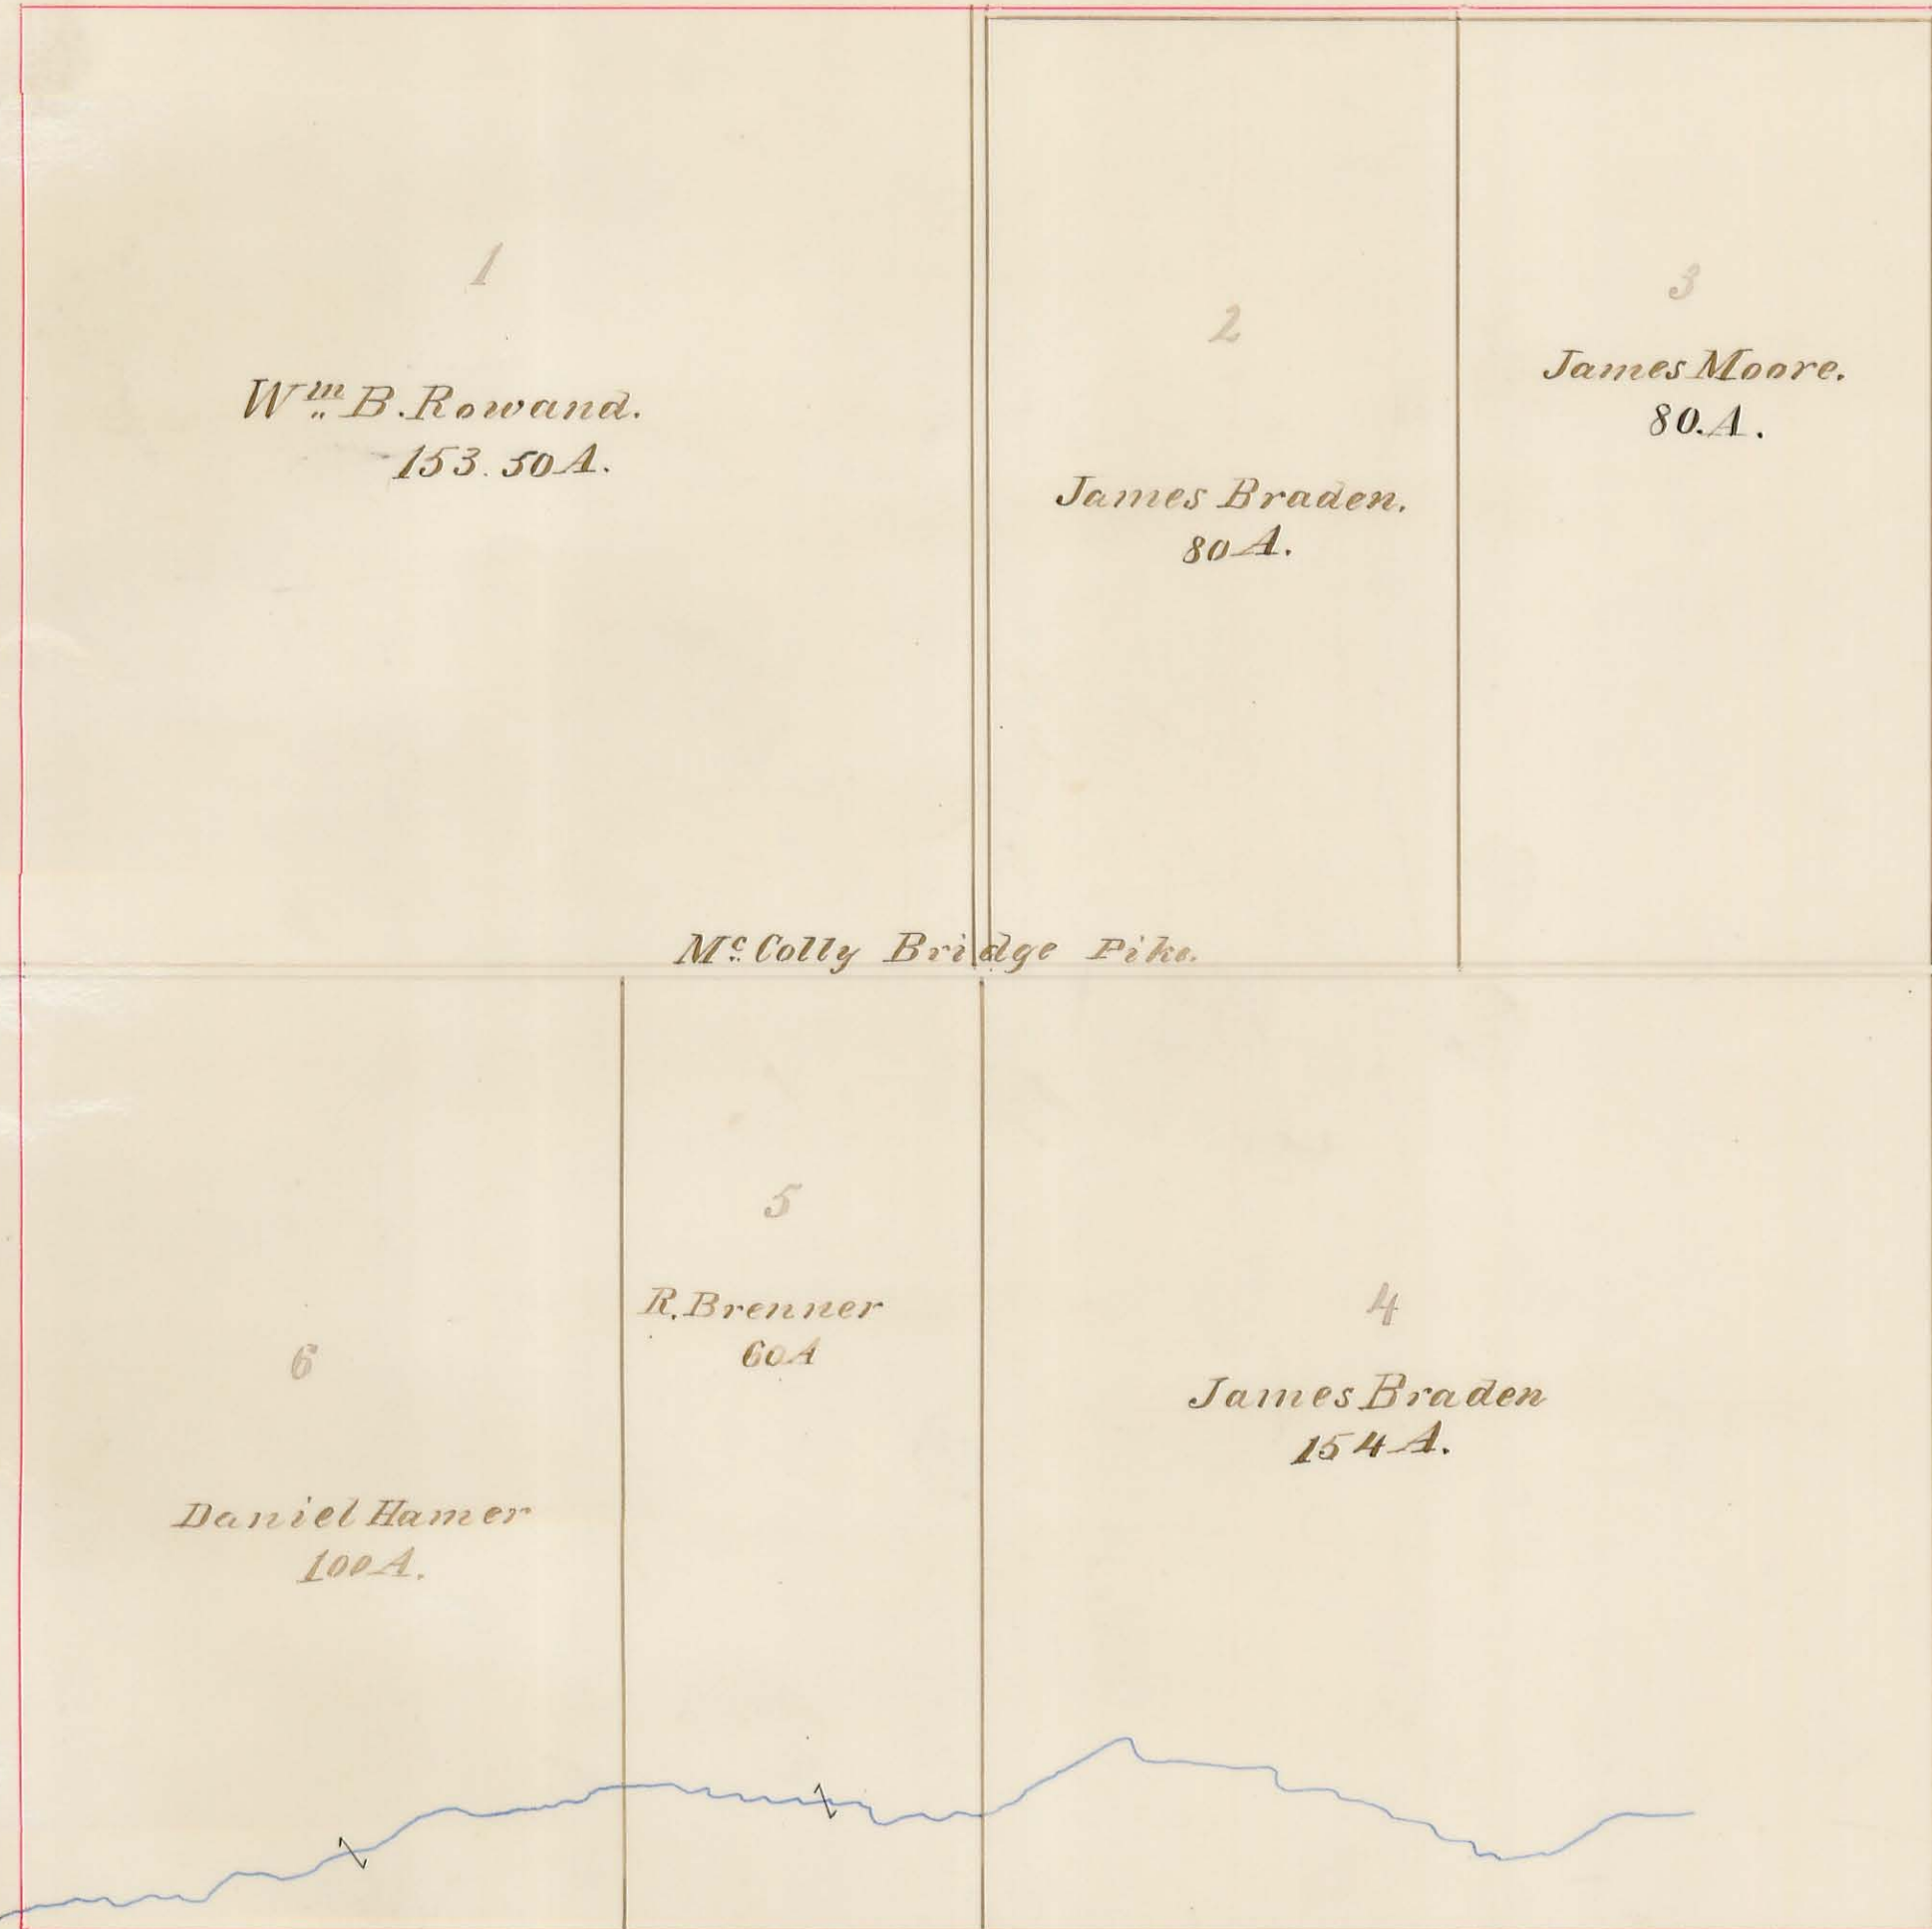 1
Wm B. Rowand.
153.50 A.
2
James Braden.
80 A.
3
James Moore.
80. A.
Mc. Colly Bridge Pike.
6
Daniel Hamer
100 A.
5
R. Brenner
60 A
4
James Braden
154 A.